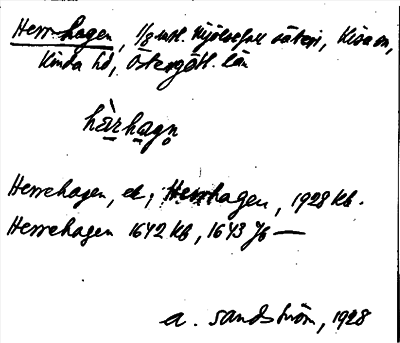 Herrhagen, 1/8 mtl. Mjölsefall säteri, Kisa sn,
Kinda hd, Östergötl. län
hàrhagn̥
Herrehagen, el; Herrhagen, 1928 Kb.
Herrehagen 1642 Kb, 1643 Jb —
A. Sandström, 1928